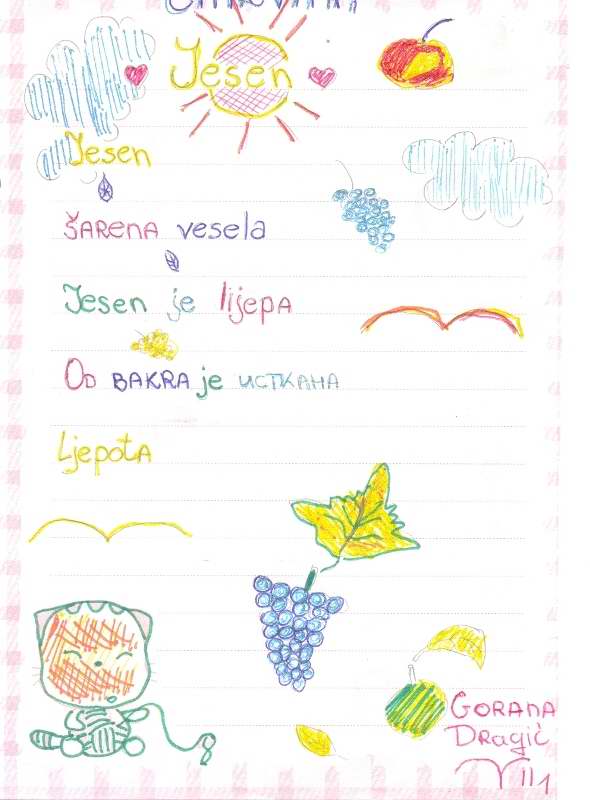 Jesen
Jesen
ŠARENA vesela
Jesen je lijepa
OD BAKRA je истканa
Ljepota
GORANA
Dragić
VII1